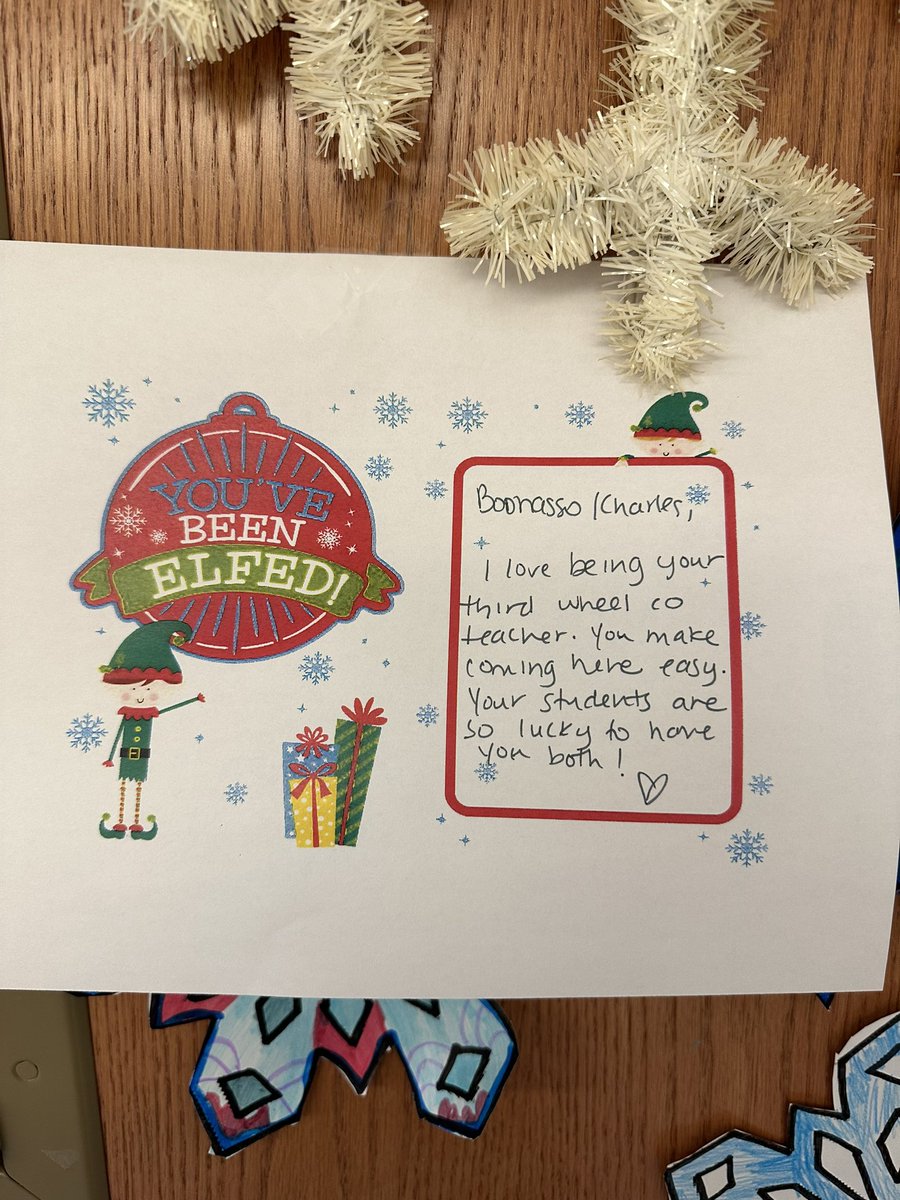 YOU'VE
BEEN
ELFED!
Bonnasso / Charles,
I love being your
third wheel co
teacher. You make
coming here easy.
Your students are
so lucky to have
you both!